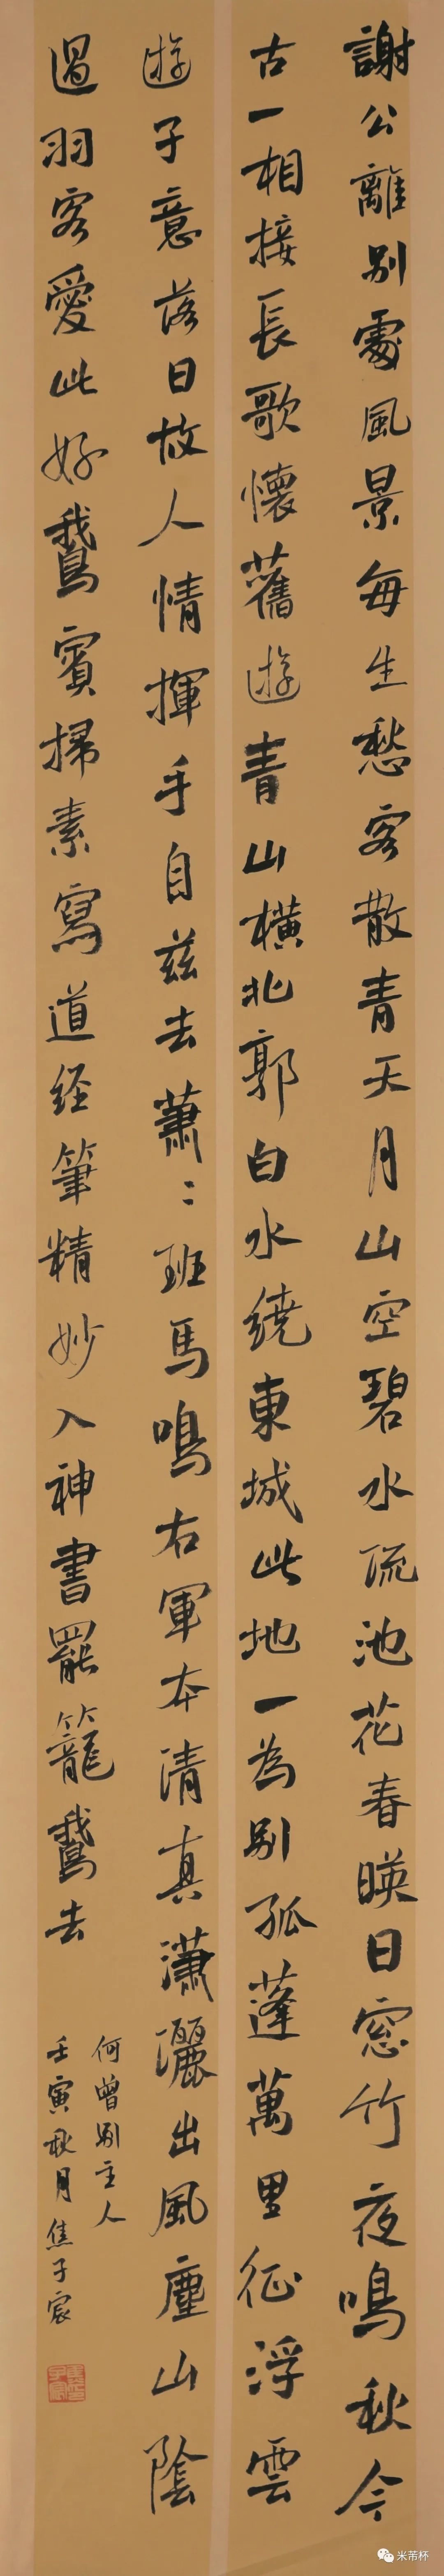 謝公離別處風景每生愁客散青天月山空碧水流池花春暎日窓竹夜鳴秋今
古一相接長歌懷舊遊青山橫北郭白水繞東城此地一為別孤蓬萬里征浮雲
遊子意落日故人情揮手自茲去蕭〻班馬鳴右軍本清真瀟灑出風塵山陰
過羽客愛此好鵞賓掃素寫道経筆精妙入神書罷籠鵞去
何曾別主人
壬寅秋月焦子宸
米芾杯